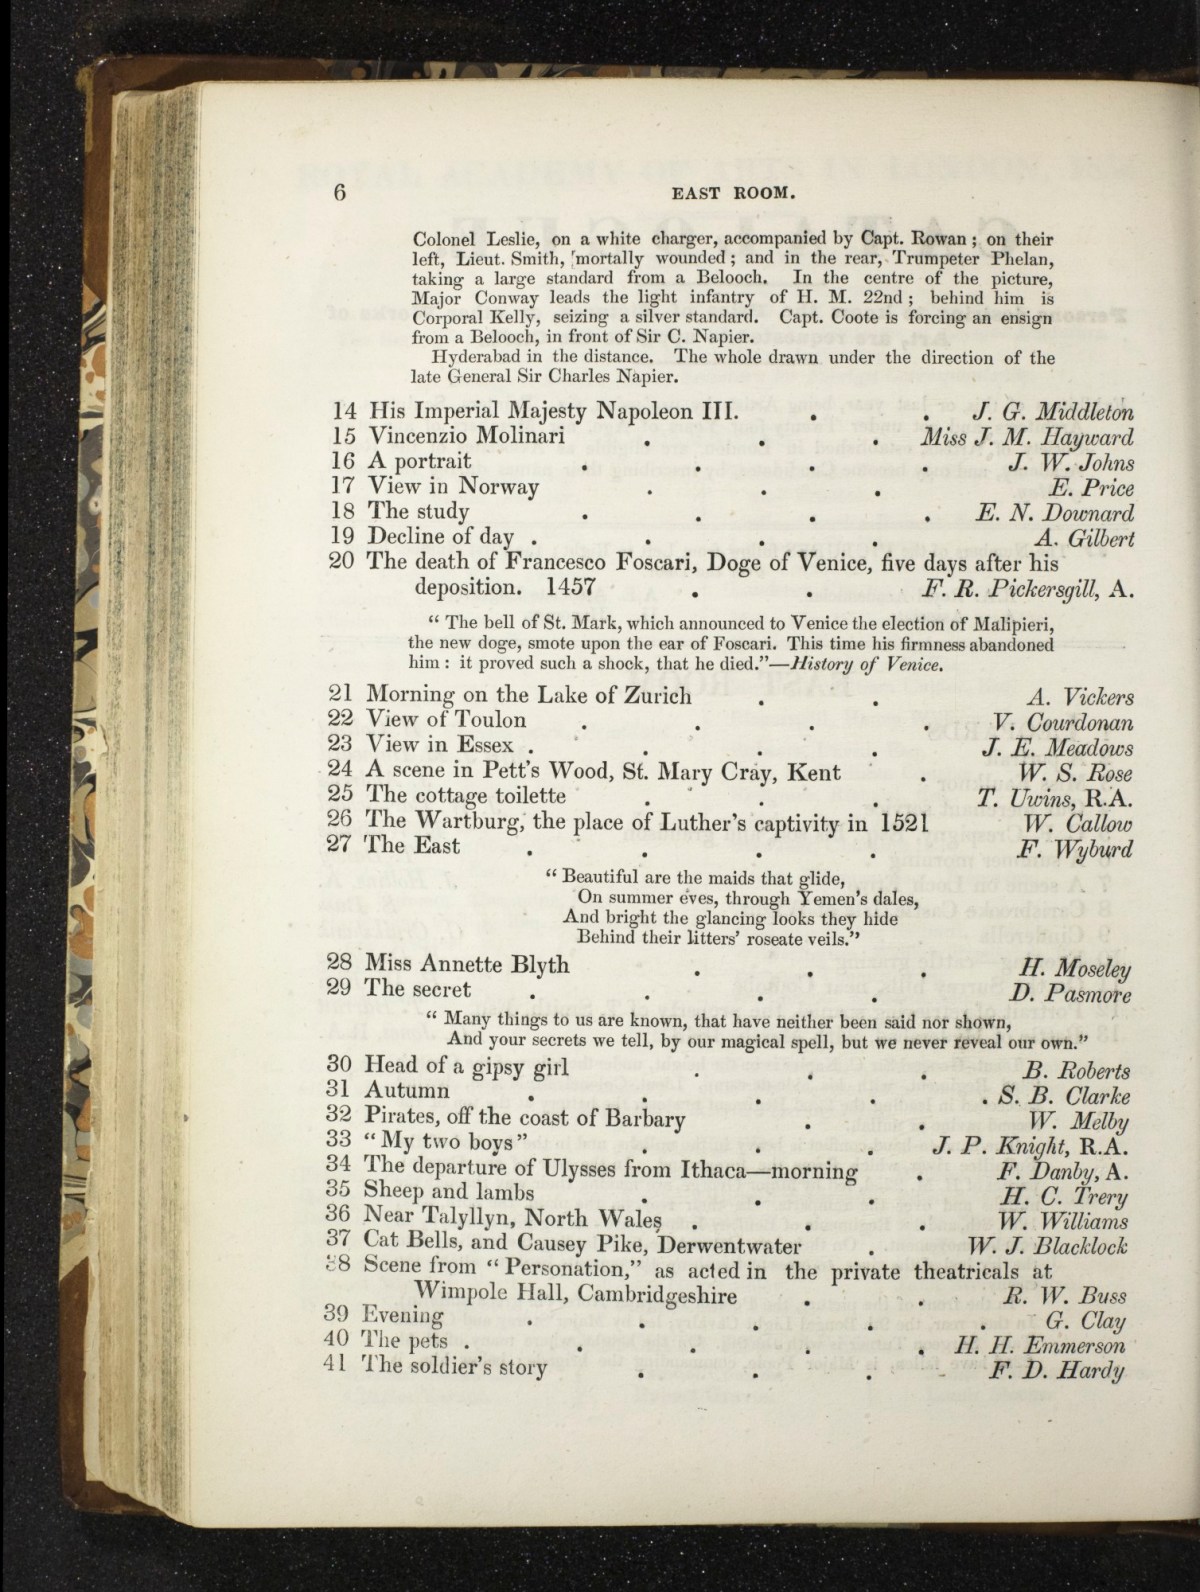 6 EAST ROOM.
Colonel Leslie, on a white charger, accompanied by Capt. Rowan ; on their
left, Lieut. Smith, 'mortally wounded ; and in the rear, Trumpeter Phelan,
taking a large standard from a Belooch. In the centre of the picture,
Major Conway leads the light infantry of H. M. 22nd ; behind him is
Corporal Kelly, seizing a silver standard. Capt. Coote is forcing an ensign
from a Belooch, in front of Sir C. Napier.
Hyderabad in the distance. The whole drawn under the direction of the
late General Sir Charles Napier.
14 His Imperial Majesty Napoleon III. . . J. G. Middleton
15 Vincenzio Molinari . . . Miss J. M. Hayward
16 A portrait . . . . J. W. Johns
17 View in Norway . . . E. Price
18 The study . . . . E. N. Downard
19 Decline of day . . . . A. Gilbert
20 The death of Francesco Foscari, Doge of Venice, five days after his
deposition. 1457 . . F. R. Pickersgill, A.
“ The bell of St. Mark, which announced to Venice the election of Malipieri,
the new doge, smote upon the ear of Foscari. This time his firmness abandoned
him : it proved such a shock, that he died.”—History of Venice.
21 Morning on the Lake of Zurich . . A. Vickers
22 View of Toulon . . . . V. Courdonan
23 View in Essex . . . . J. E. Meadows
24 A scene in Pett's Wood, St. Mary Cray, Kent . W. S. Rose
25 The cottage toilette . . . T. Uwins, R.A.
26 The Wartburg, the place of Luther's captivity in 1521 W. Callow
27 The East . . . . F. Wyburd
“ Beautiful are the maids that glide,
On summer eves, through Yemen's dales,
And bright the glancing looks they hide
Behind their litters' roseate veils.”
28 Miss Annette Blyth . . . H. Moseley
29 The secret . . . . D. Pasmore
“ Many things to us are known, that have neither been said nor shown,
And your secrets we tell, by our magical spell, but we never reveal our own.”
30 Head of a gipsy girl . . . B. Roberts
31 Autumn . . . . . S. B. Clarke
32 Pirates, off the coast of Barbary . . W. Melby
33 “ My two boys ” . . . J. P. Knight, R.A.
34 The departure of Ulysses from Ithaca—morning . F. Danby, A.
35 Sheep and lambs . . . H. C. Trery
36 Near Talyllyn, North Wales . . . W. Williams
37 Cat Bells, and Causey Pike, Derwentwater . W. J. Blacklock
38 Scene from “ Personation,” as acted in the private theatricals at
Wimpole Hall, Cambridgeshire . . R. W. Buss
39 Evening . . . . . G. Clay
40 The pets . . . . . H. H. Emmerson
41 The soldier's story . . . F. D. Hardy